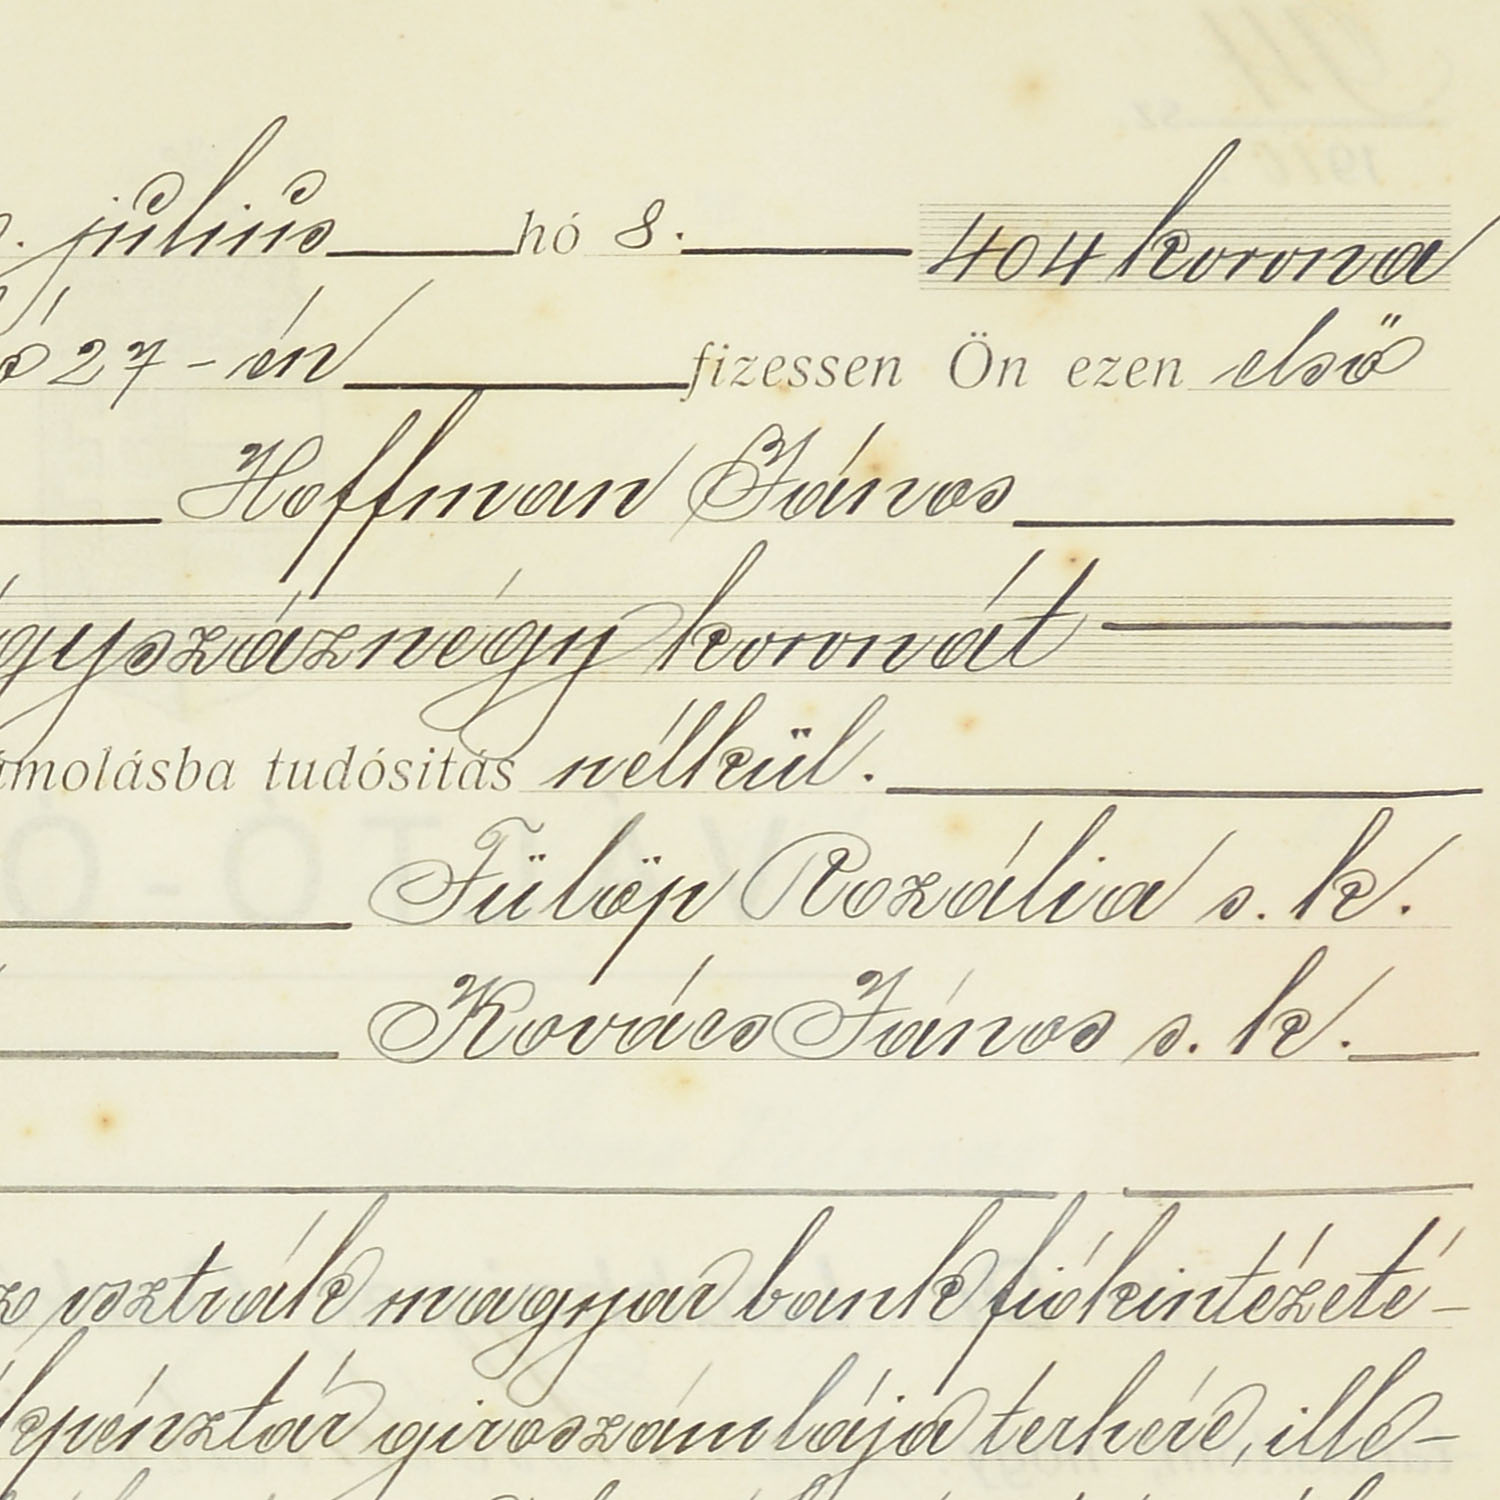 július hó 8. 404 korona
27-én fizessen Ön ezen első
Hoffman János
gyszáznégy koronát
ámolásba tudósitás nélkül.
Fülöp Rozália s. k.
Kovács János s. k.
osztrák magyar bank fiókintézeté-
pénztár giroszámlája terhére, ille-